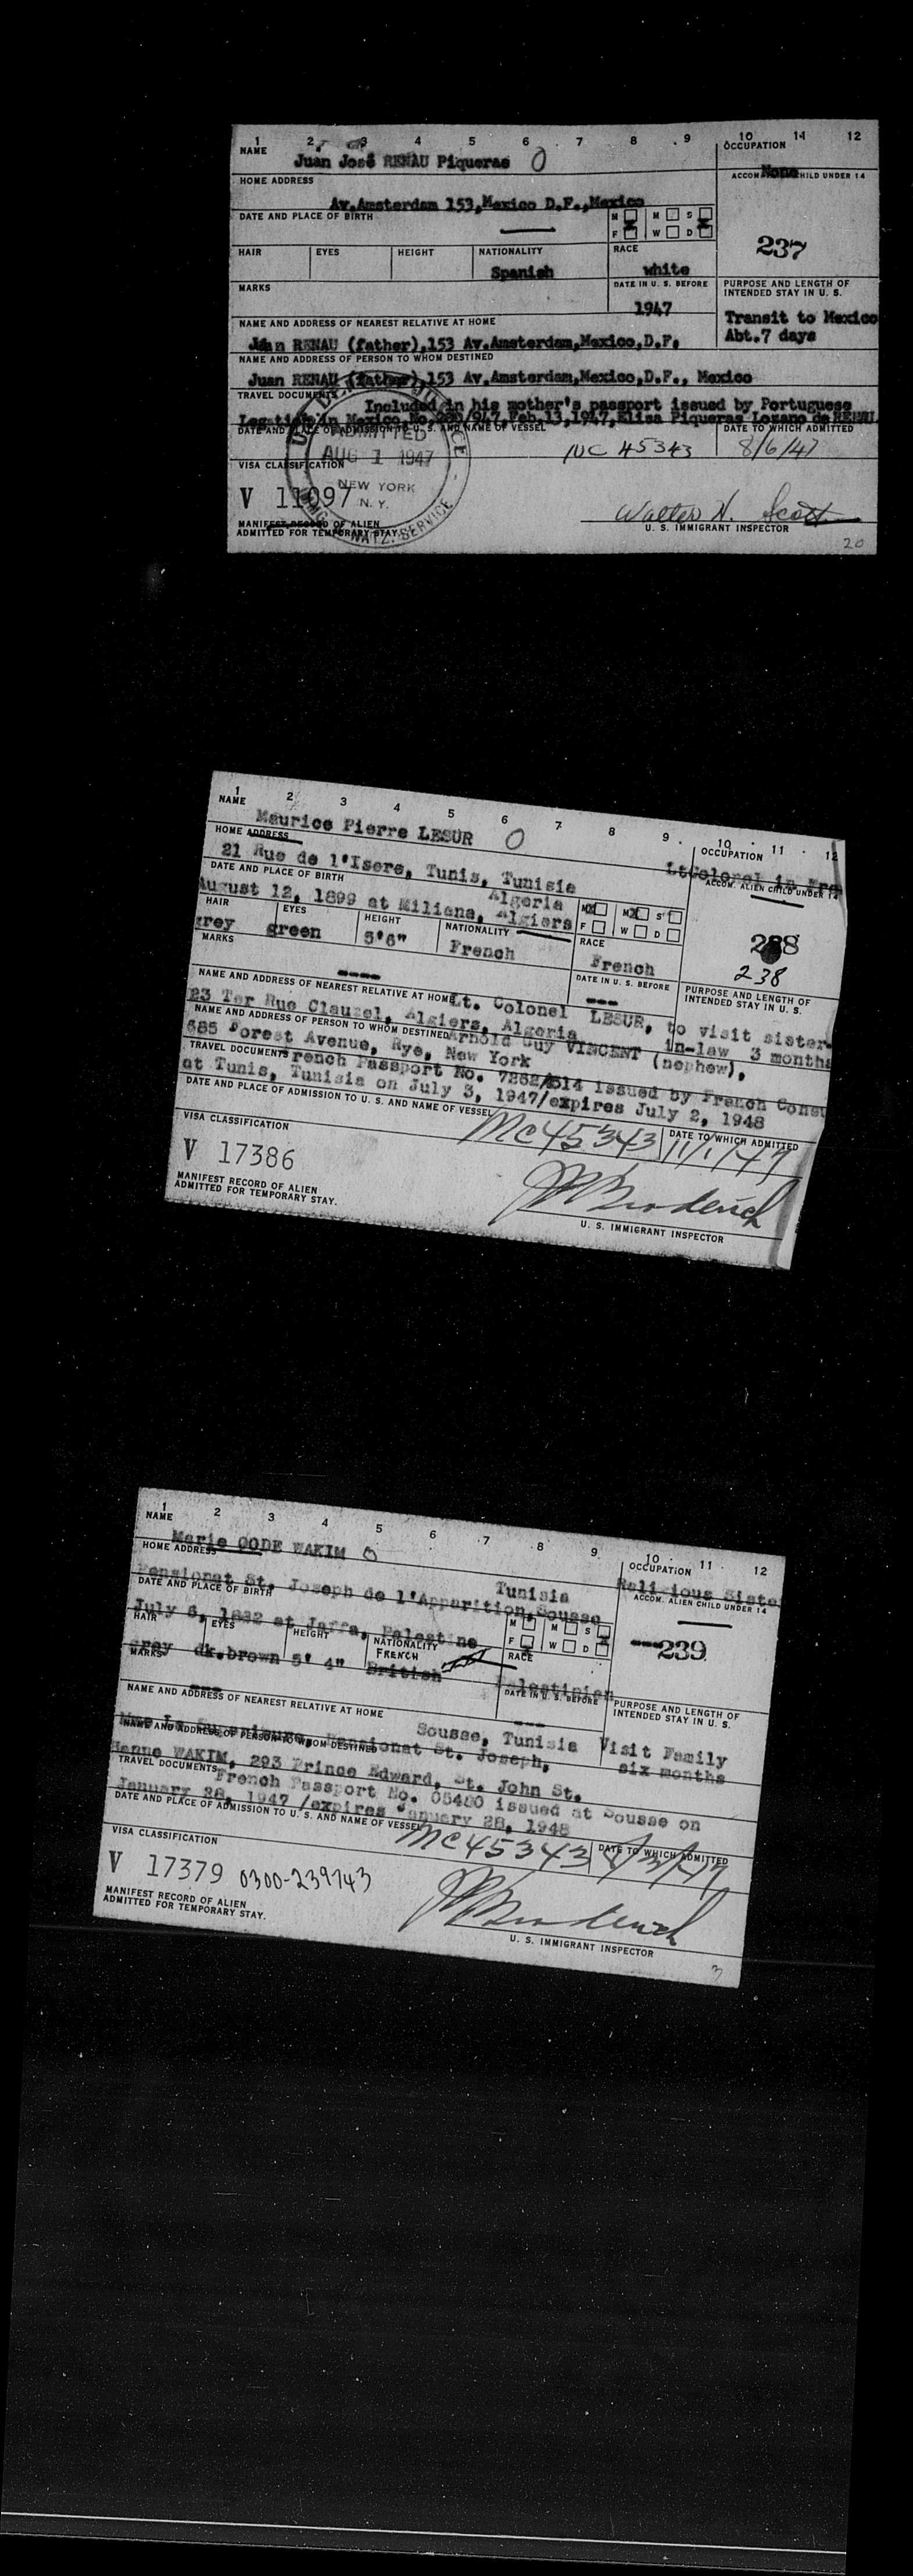 1 2 3 4 5 6 7 8 9 10 11 12
NAME
Juan José RENAU Piqueras
OCCUPATION
None
HOME ADDRESS
ACCOM. ALIEN CHILD UNDER 14
Av.Amsterdam 153,Mexico D.F.,Mexico
DATE AND PLACE OF BIRTH
M M S
F W D
237
HAIR EYES HEIGHT NATIONALITY RACE
Spanish white
MARKS
DATE IN U. S. BEFORE
1947
PURPOSE AND LENGTH OF
INTENDED STAY IN U. S.
Transit to Mexico
Abt.7 days
NAME AND ADDRESS OF NEAREST RELATIVE AT HOME
Juan RENAU (father),153 Av.Amsterdam,Mexico,D.F.
NAME AND ADDRESS OF PERSON TO WHOM DESTINED
Juan RENAU (father),153 Av.Amsterdam,Mexico,D.F., Mexico
TRAVEL DOCUMENTS
Included in his mother's passport issued by Portuguese
Legation in Mexico, Feb.13,1947, Elisa Piqueras Lozano de RENAU
DATE AND PLACE OF ADMISSION TO U. S. AND NAME OF VESSEL
DATE TO WHICH ADMITTED
NC 45343 8/6/47
ADMITTED
AUG 1 1947
NEW YORK
N. Y.
VISA CLASSIFICATION
V 11097
Walter N. Scott
MANIFEST RECORD OF ALIEN
ADMITTED FOR TEMPORARY STAY.
U. S. IMMIGRANT INSPECTOR
20
1 2 3 4 5 6 7 8 9 10 11 12
NAME
Maurice Pierre LESUR
OCCUPATION
LtColonel in
HOME ADDRESS
ACCOM. ALIEN CHILD UNDER 14
21 Rue de l'Isere, Tunis, Tunisia
DATE AND PLACE OF BIRTH
Algeria
August 12, 1899 at Miliana, Algiers
M M S
F W D
238
238
HAIR EYES HEIGHT NATIONALITY RACE
grey green 5'6" French French
MARKS
----
DATE IN U. S. BEFORE
---
PURPOSE AND LENGTH OF
INTENDED STAY IN U. S.
to visit sister-
in-law 3 months
NAME AND ADDRESS OF NEAREST RELATIVE AT HOME
Lt. Colonel LESUR,
23 Ter Rue Clauzel, Algiers, Algeria
NAME AND ADDRESS OF PERSON TO WHOM DESTINED
Arnold Guy VINCENT (nephew),
685 Forest Avenue, Rye, New York
TRAVEL DOCUMENTS
French Passport No. issued by French Consu
at Tunis, Tunisia on July 3, 1947/expires July 2, 1948
DATE AND PLACE OF ADMISSION TO U. S. AND NAME OF VESSEL
DATE TO WHICH ADMITTED
NC45343 11/1/47
VISA CLASSIFICATION
V 17386
MANIFEST RECORD OF ALIEN
ADMITTED FOR TEMPORARY STAY.
Broderick
U. S. IMMIGRANT INSPECTOR
1 2 3 4 5 6 7 8 9 10 11 12
NAME
Marie WAKIM
OCCUPATION
Religious Siste
HOME ADDRESS
ACCOM. ALIEN CHILD UNDER 14
Pensionat St. Joseph de l'Apparition,Sousse
Tunisia
DATE AND PLACE OF BIRTH
July 6, at Jaffa, Palestine
M M S
F W D
---239
HAIR EYES HEIGHT NATIONALITY RACE
FRENCH
gray dk.brown 5' 4" British Palestinian
MARKS
---
DATE IN U. S. BEFORE
---
PURPOSE AND LENGTH OF
INTENDED STAY IN U. S.
Visit Family
six months
NAME AND ADDRESS OF NEAREST RELATIVE AT HOME
Sousse, Tunisia
Pensionat St. Joseph,
NAME AND ADDRESS OF PERSON TO WHOM DESTINED
Hanne WAKIM, 293 Prince Edward, St. John St.
TRAVEL DOCUMENTS
French Passport No. 05480 issued at Sousse on
January 28, 1947 /expires January 28, 1948
DATE AND PLACE OF ADMISSION TO U. S. AND NAME OF VESSEL
DATE TO WHICH ADMITTED
NC45343
VISA CLASSIFICATION
V 17379 0300-239743
MANIFEST RECORD OF ALIEN
ADMITTED FOR TEMPORARY STAY.
Broderick
U. S. IMMIGRANT INSPECTOR
3